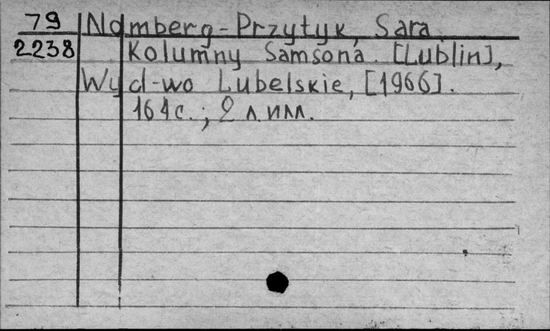 79 Nomberg-Przytyk, Sara.
2238 Kolumny Samsona. [Lublin],
Wyd-wo Lubelskie, [1966].
164 с.; 2 л. илл.